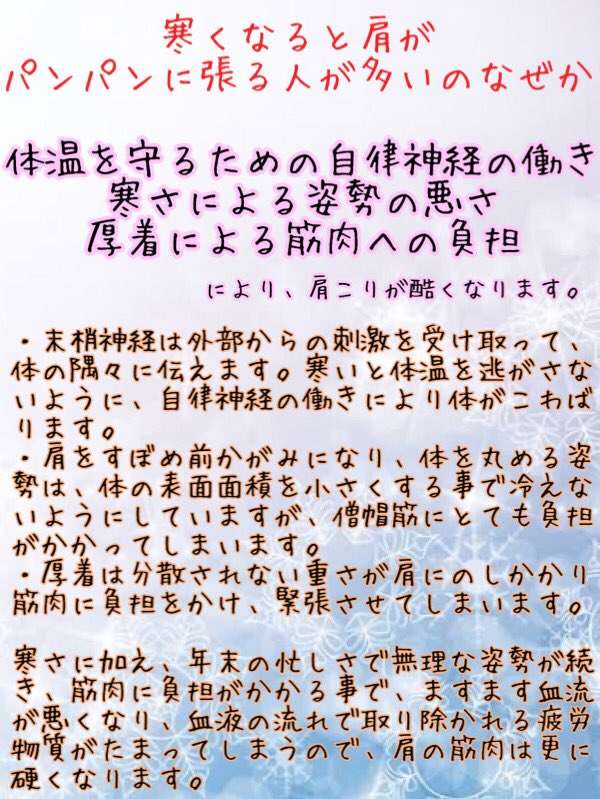 寒くなると肩が
パンパンに張る人が多いのなぜか
体温を守るための自律神経の働き
寒さによる姿勢の悪さ
厚着による筋肉への負担
により、肩こりが酷くなります。
・末梢神経は外部からの刺激を受け取って、
体の隅々に伝えます。寒いと体温を逃がさな
いように、自律神経の働きにより体がこわば
ります。
・肩をすぼめ前かがみになり、体を丸める姿
勢は、体の表面面積を小さくする事で冷えな
いようにしていますが、僧帽筋にとても負担
がかかってしまいます。
・厚着は分散されない重さが肩にのしかかり
筋肉に負担をかけ、緊張させてしまいます。
寒さに加え、年末の忙しさで無理な姿勢が続
き、筋肉に負担がかかる事で、ますます血流
が悪くなり、血液の流れで取り除かれる疲労
物質がたまってしまうので、肩の筋肉は更に
硬くなります。